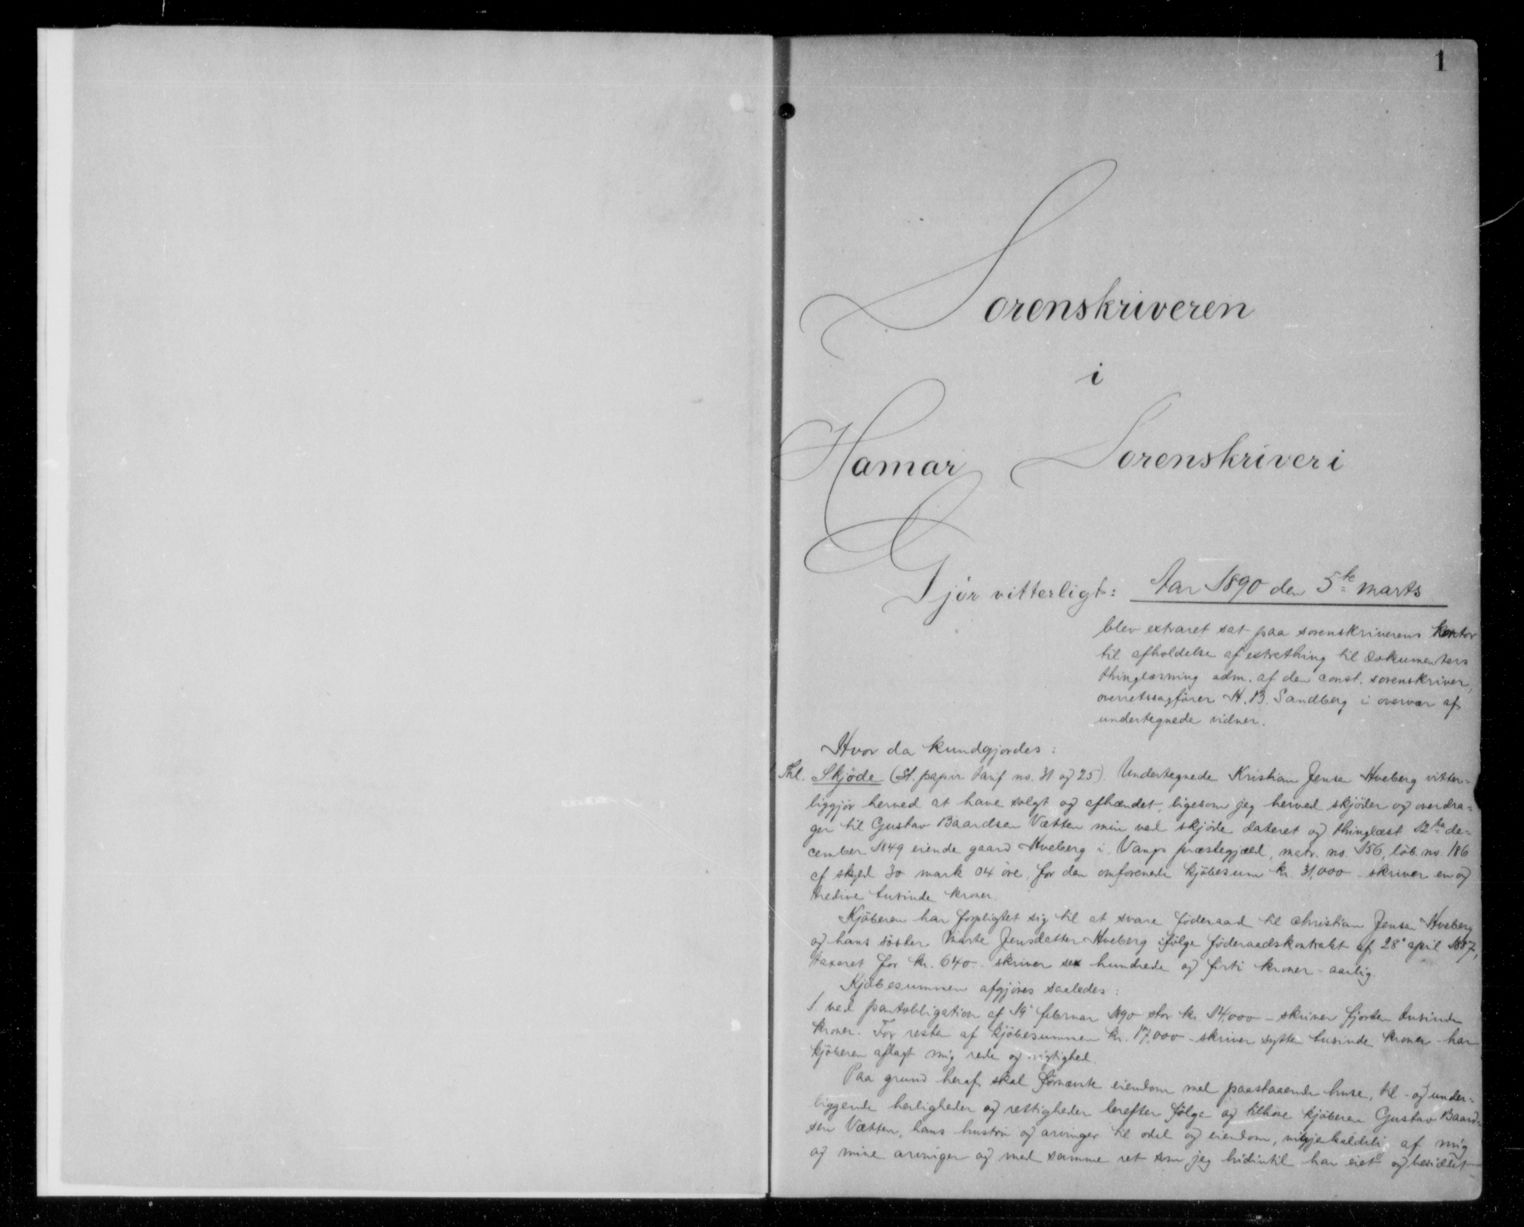 1
Sorenskriveren
i
Hamar Sorenskriveri
Gjör vitterligt: Aar 1890 den 5te marts
blev extraret sat paa sorenskriverens kontor
til afholdelse af extrathing til dokumenters
thinglæsning adm. af den const. sorenskriver,
overretssagfører H. B. Sandberg i overvær af
undertegnede vidner.
Hvor da kundgjordes:
Thl. Skjöde (St. papir tarif no. 31 og 25). Undertegnede Kristian Jensen Hveberg vitter-
liggjör herved at have solgt og afhændet, ligesom jeg herved skjöder og overdra-
ger til Gustav Baardsen Vætten min ved skjöde dateret og thinglæst 12te de-
cember 1849 eiende gaard Hveberg i Vangs præstegjæld, matr. no. 156, löb. no. 186
af skyld 30 mark 04 öre, for den omforenede kjöbesum kr. 31,000 - skriver en og
tredive tusinde kroner.
Kjöberen har forpligtet sig til at svare föderaad til Christian Jensen Hveberg
og hans söster Marte Jensdatter Hveberg ifölge föderaadskontrakt af 28 april 1887,
taxeret for kr. 640 - skriver sex hundrede og forti kroner - aarlig.
Kjöbesummen afgjöres saaledes:
1. ved pantobligation af 19 februar 1890 stor kr. 14,000 - skriver fjorten tusinde
kroner. For resten af kjöbesummen kr. 17,000 - skriver sytten tusinde kroner - har
kjöberen aflagt mig rede og rigtighed.
Paa grund heraf skal fornævnte eiendom med paastaaende huse, til- og under-
liggende herligheder og rettigheder herefter fölge og tilhöre kjöberen Gustav Baard-
sen Vætten, hans hustru og arvinger til odel og eiendom, uigjenkaldelig af mig
og mine arvinger og med samme ret som jeg hidindtil har eiet og besiddet